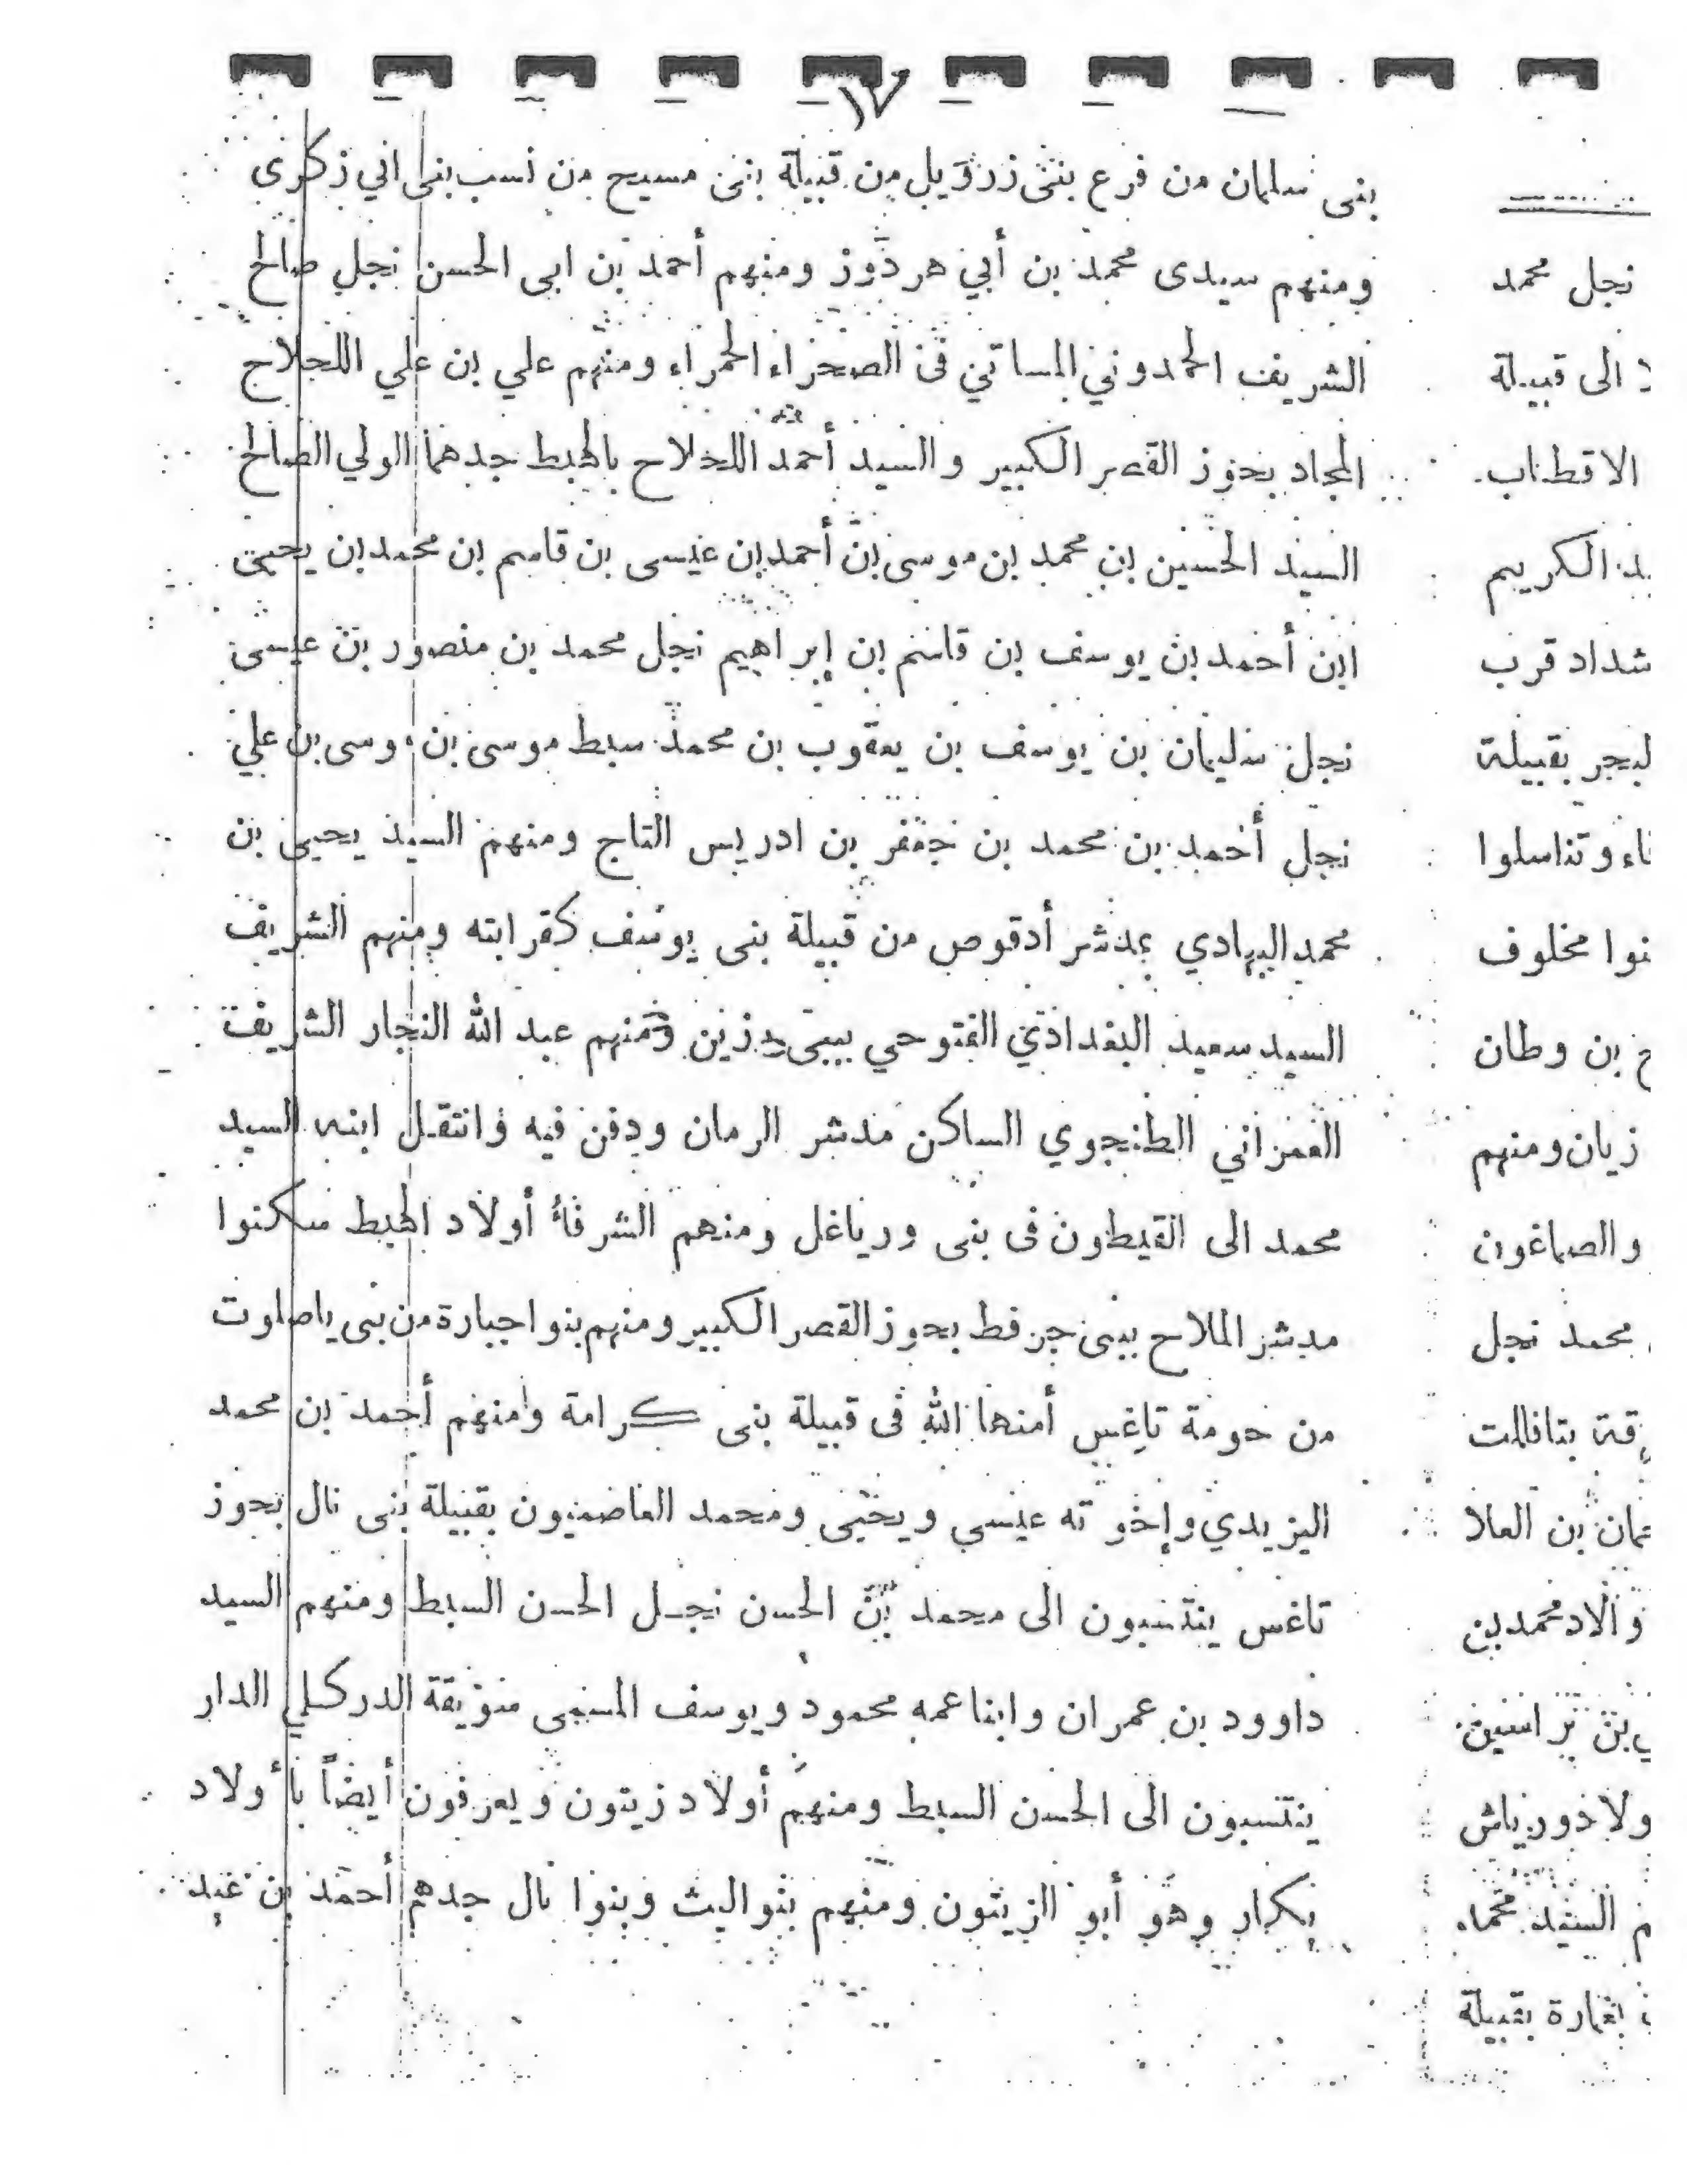 ١٧
بنى سلمان من فرع بنى زرويل من قبيلة بنى مسيح من نسب بنى ابي زكرى
ومنهم سيدى محمد بن أبي هردوز ومنهم أحمد بن ابى الحسن نجل صالح
الشريف الحمدوني المساتي فى الصخراء الحمراء ومنهم علي بن علي اللجلاج
المجاد بحوز القصر الكبير والسيد أحمد اللجلاح بالهبط جدهما الولي الصالح
السيد الحسين بن محمد بن موسى بن أحمد بن عيسى بن قاسم بن محمد بن يحيى
ابن أحمد بن يوسف بن قاسم بن إبراهيم نجل محمد بن منصور بن عيسى
نجل سليمان بن يوسف بن يعقوب بن محمد سبط موسى بن موسى بن علي
نجل أحمد بن محمد بن جعفر بن ادريس التاج ومنهم السيد يحيى بن
محمد البهادي بمدشر أدقوص من قبيلة بنى يوسف كقرابته ومنهم الشريف
السيد سعيد البغدادي الفتوحي ومنهم عبد الله النجار الشريف
الغمزاني الطنجوي الساكن مدشر الرمان ودفن فيه وانتقل ابنه السيد
محمد الى القيطون فى بنى ورياغل ومنهم الشرفاء أولاد الهبط سكنوا
مدشر الملاح ببنى جرفط بحوز القصر الكبير ومنهم بنوا جبارة من بنى ياصلوت
من حومة تاغس أمنها الله فى قبيلة بنى كرامة ومنهم أحمد بن محمد
اليزيدي وإخوته عيسى ويحيى ومحمد العاصميون بقبيلة بنى نال بحوز
تاغس ينتسبون الى محمد بن الحسن نجل الحسن السبط ومنهم السيد
داوود بن عمران وابنا عمه محمود ويوسف المسنى منويقة الدركلي الدار
ينتسبون الى الحسن السبط ومنهم أولاد زيتون ويعرفون أيضاً بأولاد
بكار وهو أبو الزيتون ومنهم بنواليث وبنوا نال جدهم أحمد بن عبد
نجل محمد
الى قبيلة
الاقطاب
الكريم
شداد قرب
بقبيلة
وتناسلوا
مخلوف
بن وطان
زيان ومنهم
والصباغون
محمد نجل
بتافلالت
بن العلا
والاد محمد بن
السيد محمد
بغمارة بقبيلة